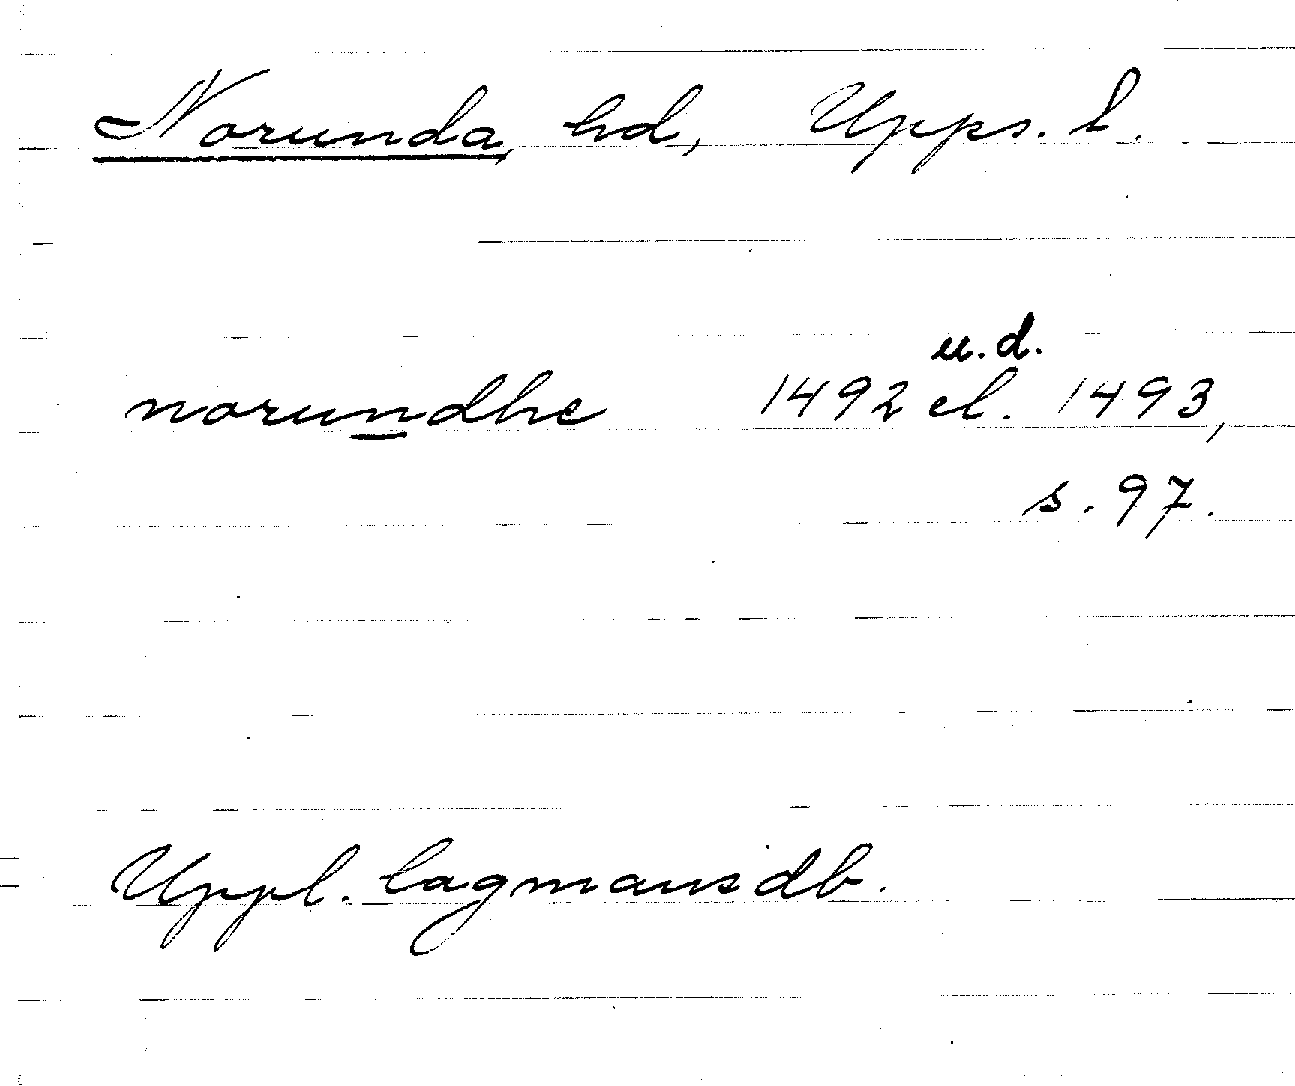 Norunda, hd, Upps. l.
u.d.
norundhe 1492 el. 1493,
s. 97.
Uppl. lagmansdb.